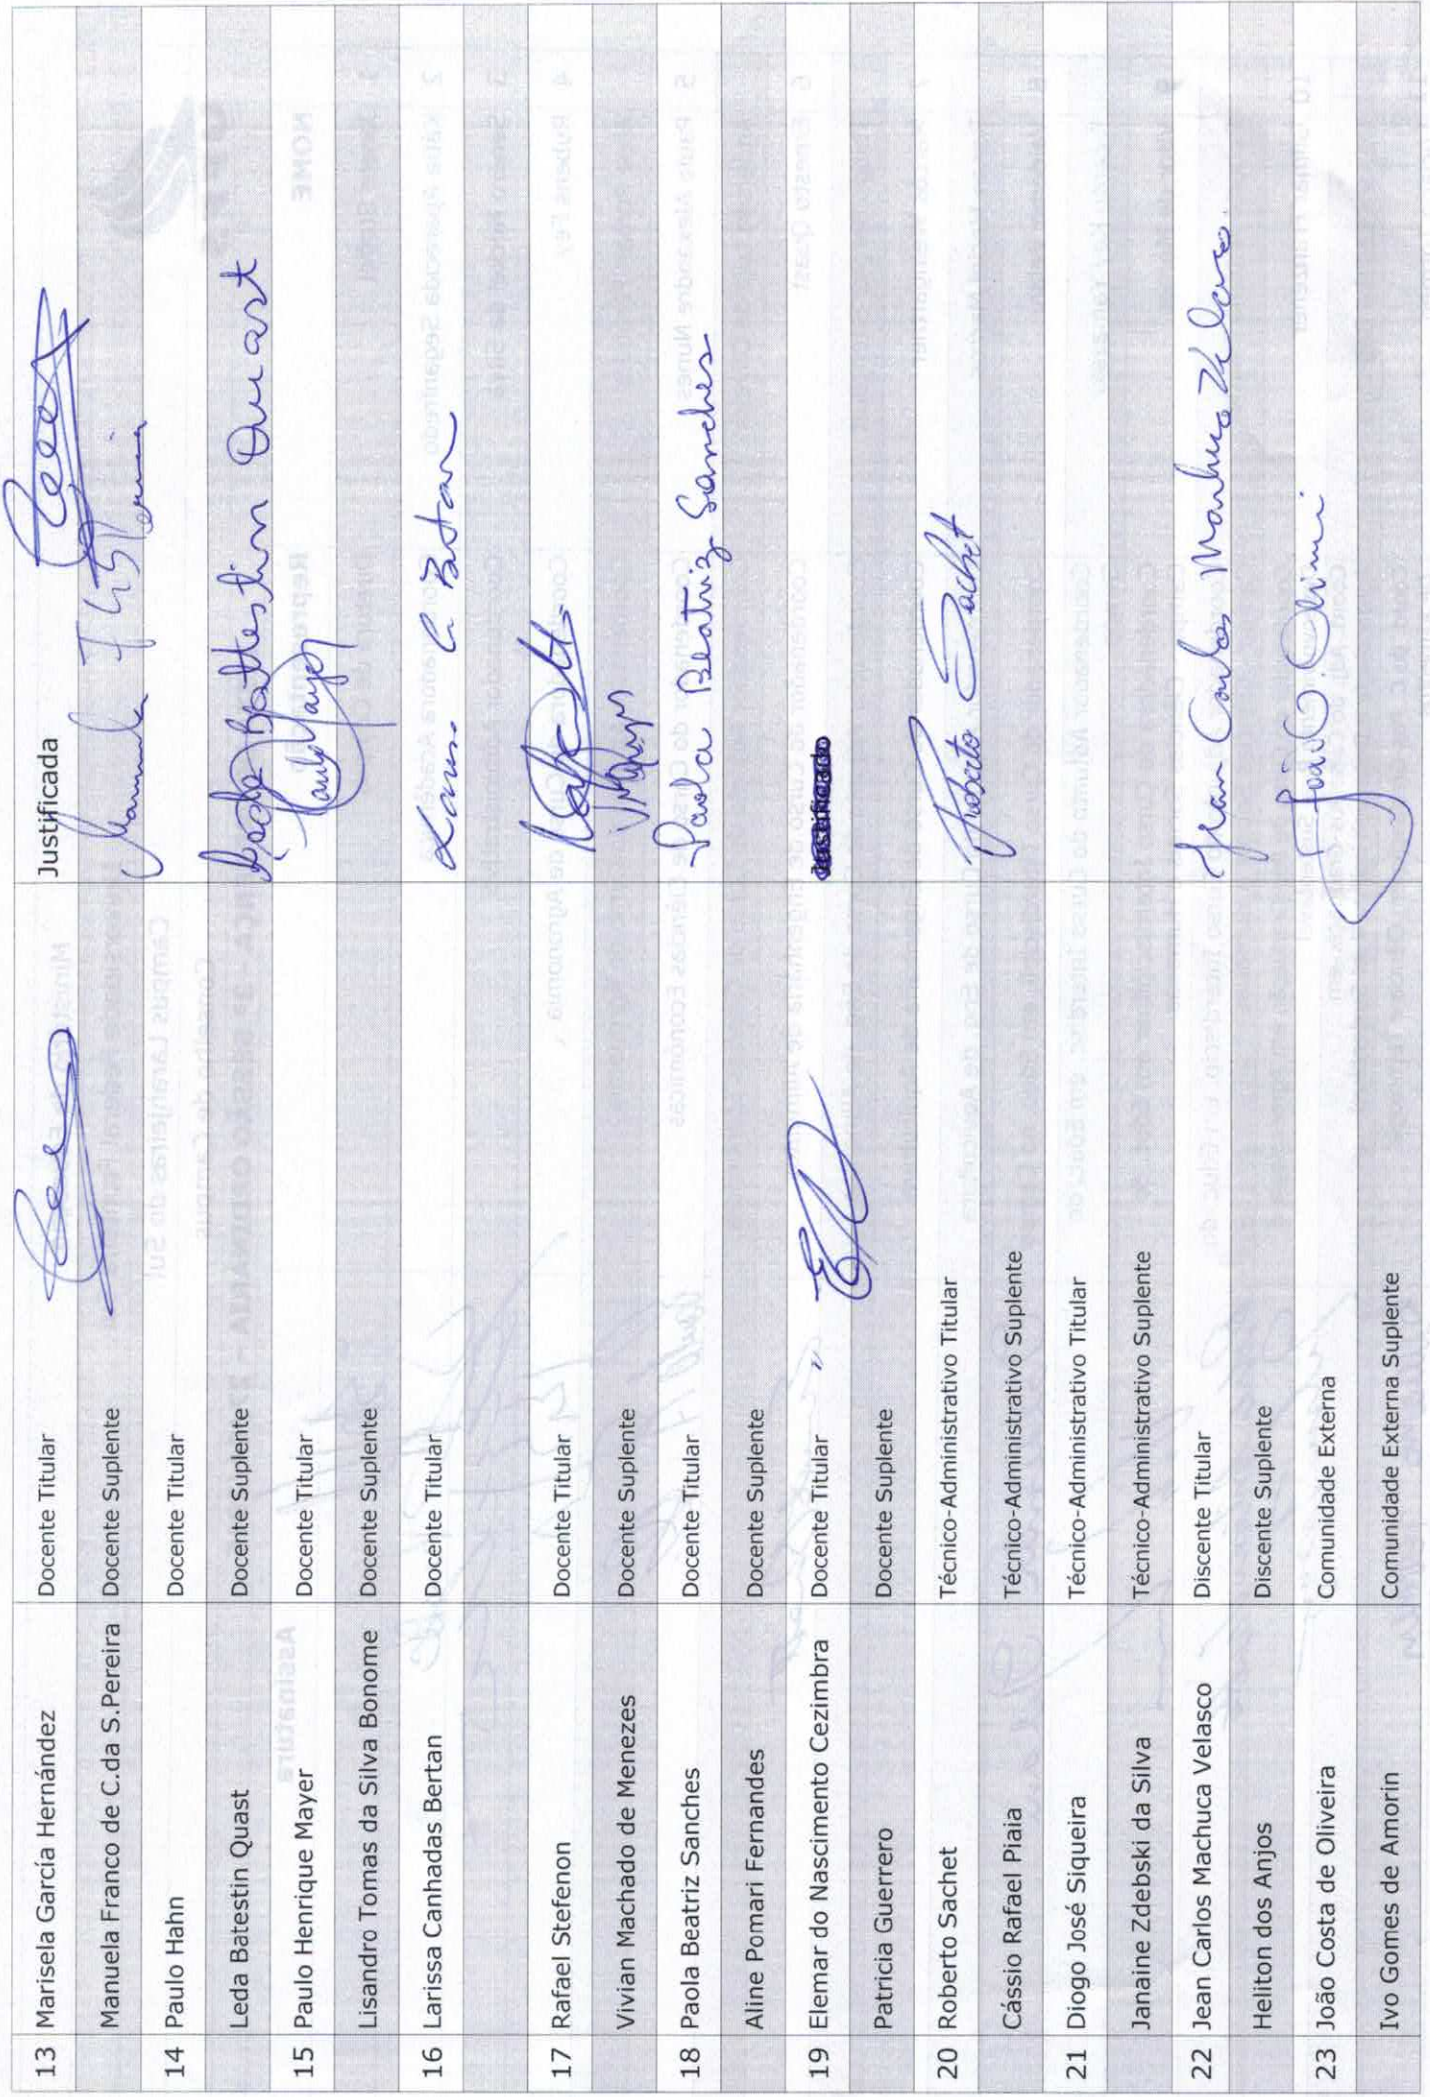 13 Marisela García Hernández Docente Titular Justificada
Manuela Franco de C.da S.Pereira Docente Suplente Manuela F
14 Paulo Hahn Docente Titular
Leda Batestin Quast Docente Suplente Leda Battestin Quast
15 Paulo Henrique Mayer Docente Titular Paulo Mayer
Lisandro Tomas da Silva Bonome Docente Suplente
16 Larissa Canhadas Bertan Docente Titular Larissa C. Bertan
17 Rafael Stefenon Docente Titular
Vivian Machado de Menezes Docente Suplente
18 Paola Beatriz Sanches Docente Titular Paola Beatriz Sanches
Aline Pomari Fernandes Docente Suplente
19 Elemar do Nascimento Cezimbra Docente Titular
Patricia Guerrero Docente Suplente
20 Roberto Sachet Técnico-Administrativo Titular Roberto Sachet
Cássio Rafael Piaia Técnico-Administrativo Suplente
21 Diogo José Siqueira Técnico-Administrativo Titular
Janaine Zdebski da Silva Técnico-Administrativo Suplente
22 Jean Carlos Machuca Velasco Discente Titular Jean Carlos Machuca Velasco.
Heliton dos Anjos Discente Suplente
23 João Costa de Oliveira Comunidade Externa João C.
Ivo Gomes de Amorin Comunidade Externa Suplente